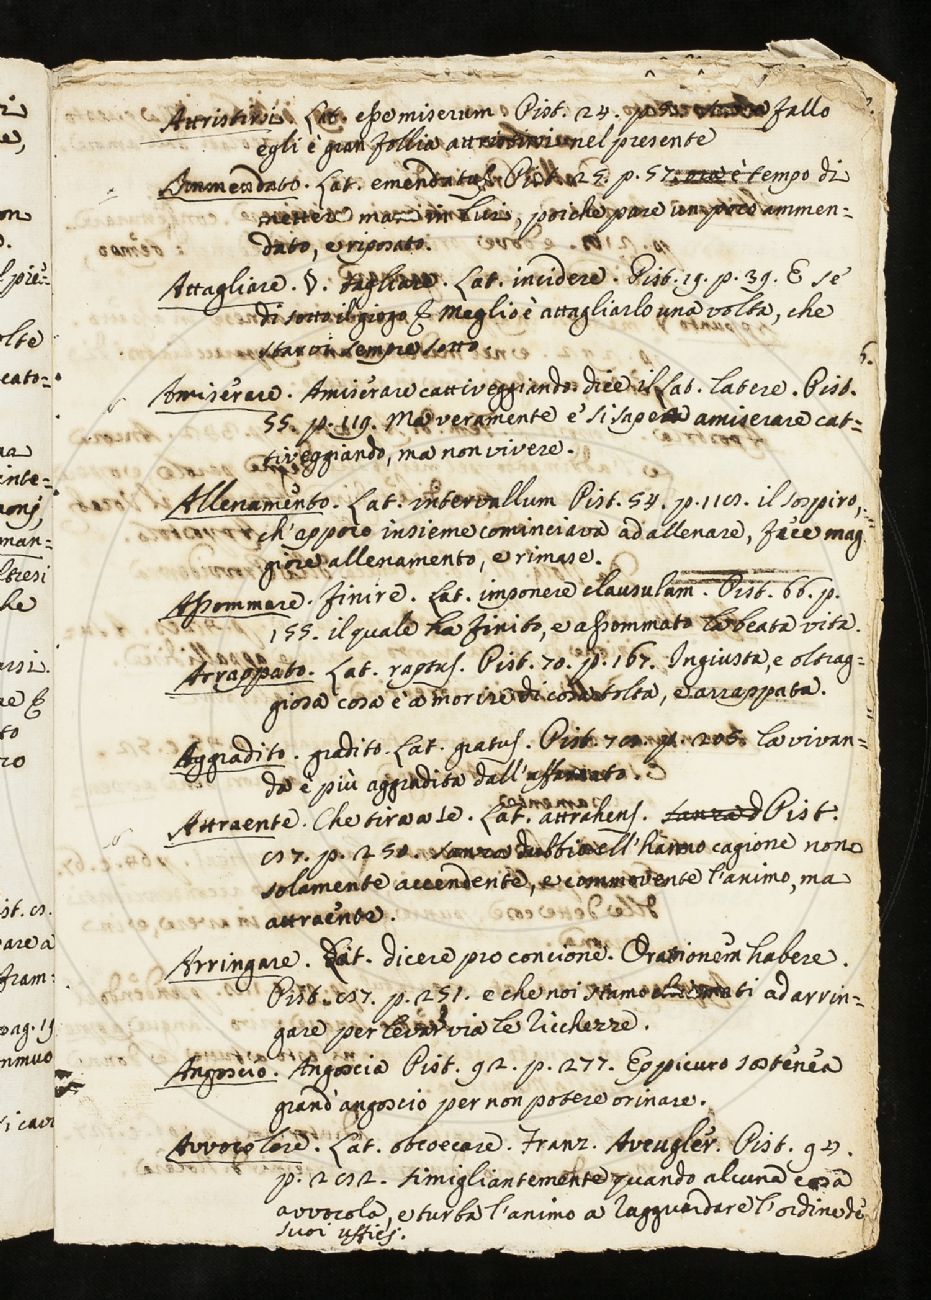 Attristirsi. Lat. esse miserum Pist. 24. p. fallo
egli è gran follia attristirsi nel presente
Ammendato. Lat. emendatus Pist. 25. p. 57. è tempo di
metter mano in Luri, poiche pare un poco ammen=
dato, e riposato.
Attagliare. V. tagliare. Lat. incidere. Pist. 19. p. 39. E se'
di sotto il giogo & Meglio è attagliarlo una volta, che
starvi sempre sotto
6.
Amiserare. Amiserare cattiveggiando. dice il Lat. latere. Pist.
55. p. 119. Ma veramente e' si sape amiserare cat=
tiveggiando, ma non vivere.
Allenamento. Lat. intervallum Pist. 54. p. 118. il sospiro,
ch'appoco insieme cominciava ad allenare, face mag
giore allenamento, e rimase.
Assommare. finire. Lat. imponere clausulam. Pist. 66. p.
155. il quale ha finito, e assommato la beata vita.
Arrappato. Lat. raptus. Pist. 70. p. 167. Ingiusta, e oltrag=
giosa cosa è a morire di cosa tolta, e arrappata.
Aggradito. gradito. Lat. gratus. Pist. 78. p. 205. la vivan=
da è più aggradita dall'affamato.
Attraente. Che tira a se. Lat. attrahens. Pist.
87. p. 250. ell'hanno cagione non
solamente accendente, e commovente l'animo, ma
attraente.
Arringare. Lat. dicere pro concione. Orationem habere.
Pist. 87. p. 251. e che noi siamo chiamati ad arrin=
gare per levar via le ricchezze.
Angoscio. Angoscia Pist. 92. p. 277. Eppicuro sostenea
grand'angoscio per non potere orinare.
Avvocolare. Lat. obcoecare. Franz. Aveugler. Pist. 94.
p. 282. similgliantemente quando alcuna cosa
avvocola, e turba l'animo a ragguardare l'ordine de'
suoi ufficj.